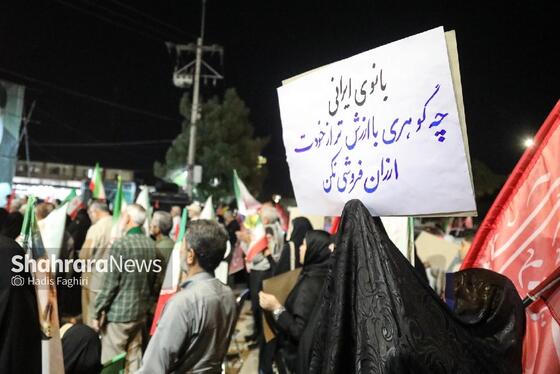 بانوی ایرانی
چه گوهری با ارزش تر از خودت
ارزان فروشی نکن
ShahraraNews
@ Hadis Faghiri